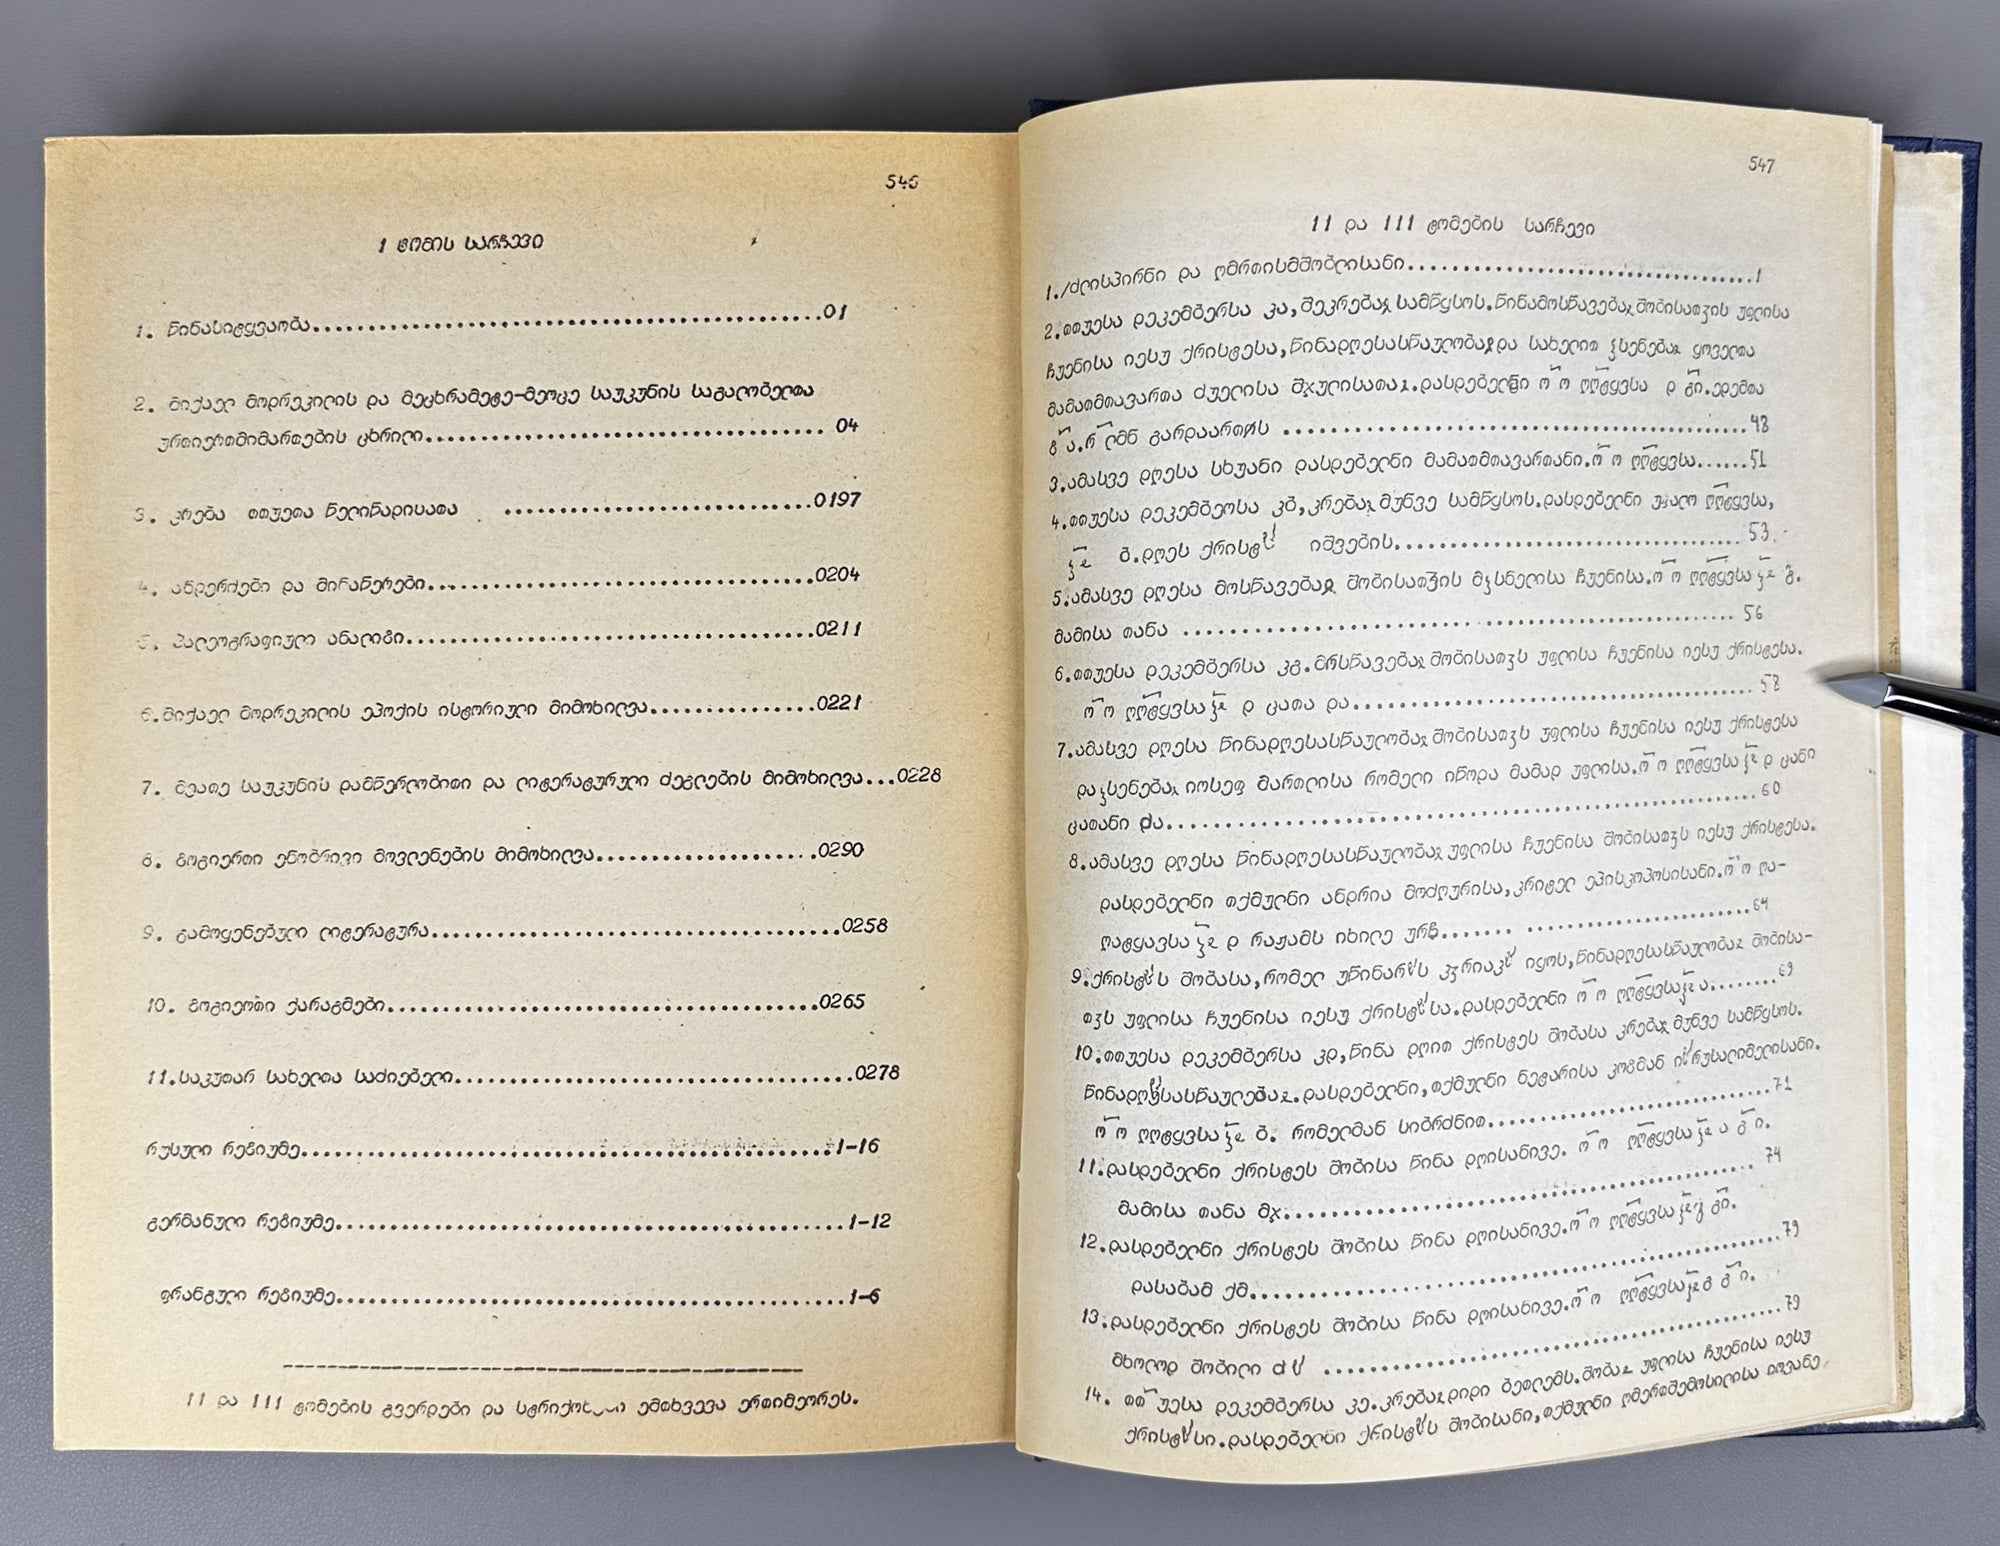 546
I ტომის სარჩევი
1. წინასიტყვაობა..............................................01
2. მიქაელ მოდრეკილის და მეცხრამეტე-მეოცე საუკუნის საგალობელთა
ურთიერთმიმართების ცხრილი.................................... 04
3. კრება თთუეთა წელიწადისათა ............................0197
4. ანდერძები და მინაწერები...................................0204
5. პალეოგრაფიული ანალიზი.....................................0211
6.მიქაელ მოდრეკილის ეპოქის ისტორიული მიმოხილვა...............0221
7. მეათე საუკუნის დამწერლობითი და ლიტერატურული ძეგლების მიმოხილვა...0228
8. ზოგიერთი ენობრივი მოვლენების მიმოხილვა....................0290
9. გამოყენებული ლიტერატურა.....................................0258
10. ზოგიერთი ქარაგმები.......................................0265
11.საკუთარ სახელთა საძიებელი....................................0278
რუსული რეზიუმე................................................1-16
გერმანული რეზიუმე..............................................1-12
ფრანგული რეზიუმე..............................................1-6
II და III ტომების გვერდები და ემთხვევა ერთიმეორეს.
547
II და III ტომების სარჩევი
1./ძლისპირნი და ღმრთისმშობლისანი................................1
2.თთუესა დეკემბერსა კა,შეკრებაჲ სამწყსოს.წინამოსწავებაჲ შობისათჳის უფლისა
ჩუენისა იესუ ქრისტესა,წინადღესასწაულობაჲ და სახელით ჴსენებაჲ ყოველთა
მამათმთავართა ძუელისა შჯულისათაჲ.დასდებელნი ო~ო ღღტყვსა დ გი.ედემთა
გარდაართჳს ..........................................48
3.ამასვე დღესა სხუანი დასდებელნი მამათმთავართანი.ო~ო ღღტყვსა......51
4.თთუესა დეკემბეოსა კბ,კრებაჲ მუნვე სამწყსოს.დასდებელნი უფალო ღღტყვსა,
ჴე ბ.დღეს ქრისტე იშვების................................53.
5.ამასვე დღესა მოსწავებაჲ შობისათჳის მჴსნელისა ჩუენისა.ო~ო ღღტყვსა ჴე გ.
მამისა თანა ................................................ 56
6.თთუესა დეკემბერსა კგ.მრსწავებაჲ შობისათჳს უფლისა ჩუენისა იესუ ქრისტესა.
ო~ო ღღტყვსა ჴე დ ცათა და......................................58
7.ამასვე დღესა წინადღესასწაულობაჲ შობისათჳს უფლისა ჩუენისა იესუ ქრისტესა
დაჴსენებაჲ იოსეფ მართლისა რომელი იწოდა მამად უფლისა.ო~ო ღღტყვსა ჴე დ ცანი
ცათანი და.......................................................60
8.ამასვე დღესა წინადღესასწაულობაჲ უფლისა ჩუენისა შობისათჳს იესუ ქრისტესა.
დასდებელნი თქმულნი ანდრია მოძღურისა,კრიტელ ეპისკოპოსისანი.ო~ო ღა-
ღატყავსა ჴე დ რაჟამს იხილე ურჩ....... .....................64
9.ქრისტეს შობასა,რომელ უწინარეს კჳრიაკე იყოს,წინადღესასწაულობაჲ შობისა-
თჳს უფლისა ჩუენისა იესუ ქრისტესა.დასდებელნი ო~ო ღღტყვსა ჴე ა........69
10.თთუესა დეკემბერსა კდ,წინა დღით ქრისტეს შობასა კრებაჲ მუნვე სამწყსოს.
წინადღესასწაულებაჲ.დასდებელნი,თქმულნი ნეტარისა კოზმან იერუსალიმელისანი.
ო~ო ღღტყვსა ჴე ბ. რომელმან სიბრძნით............................71
11.დასდებელნი ქრისტეს შობისა წინა დღისანივე. ო~ო ღღტყვსა ჴე ა გ~ი.
მამისა თანა მჯ...............................................74
12.დასდებელნი ქრისტეს შობისა წინა დღისანივე.ო~ო ღღტყვსა ჴე გ გი.
დასაბამ ქმ..................................................79
13.დასდებელნი ქრისტეს შობისა წინა დღისანივე.ო~ო ღღტყვსა ჴე გ გ~ი.
მხოლოდ შობილი ძე ..........................................79
14. თთ~უესა დეკემბერსა კე.კრებაჲ დიდი ბეთლემს.შობაჲ უფლისა ჩუენისა იესუ
ქრისტესი.დასდებელნი ქრისტეს შობისანი,თქმულნი ღმერთშემოსილისა იოვანე